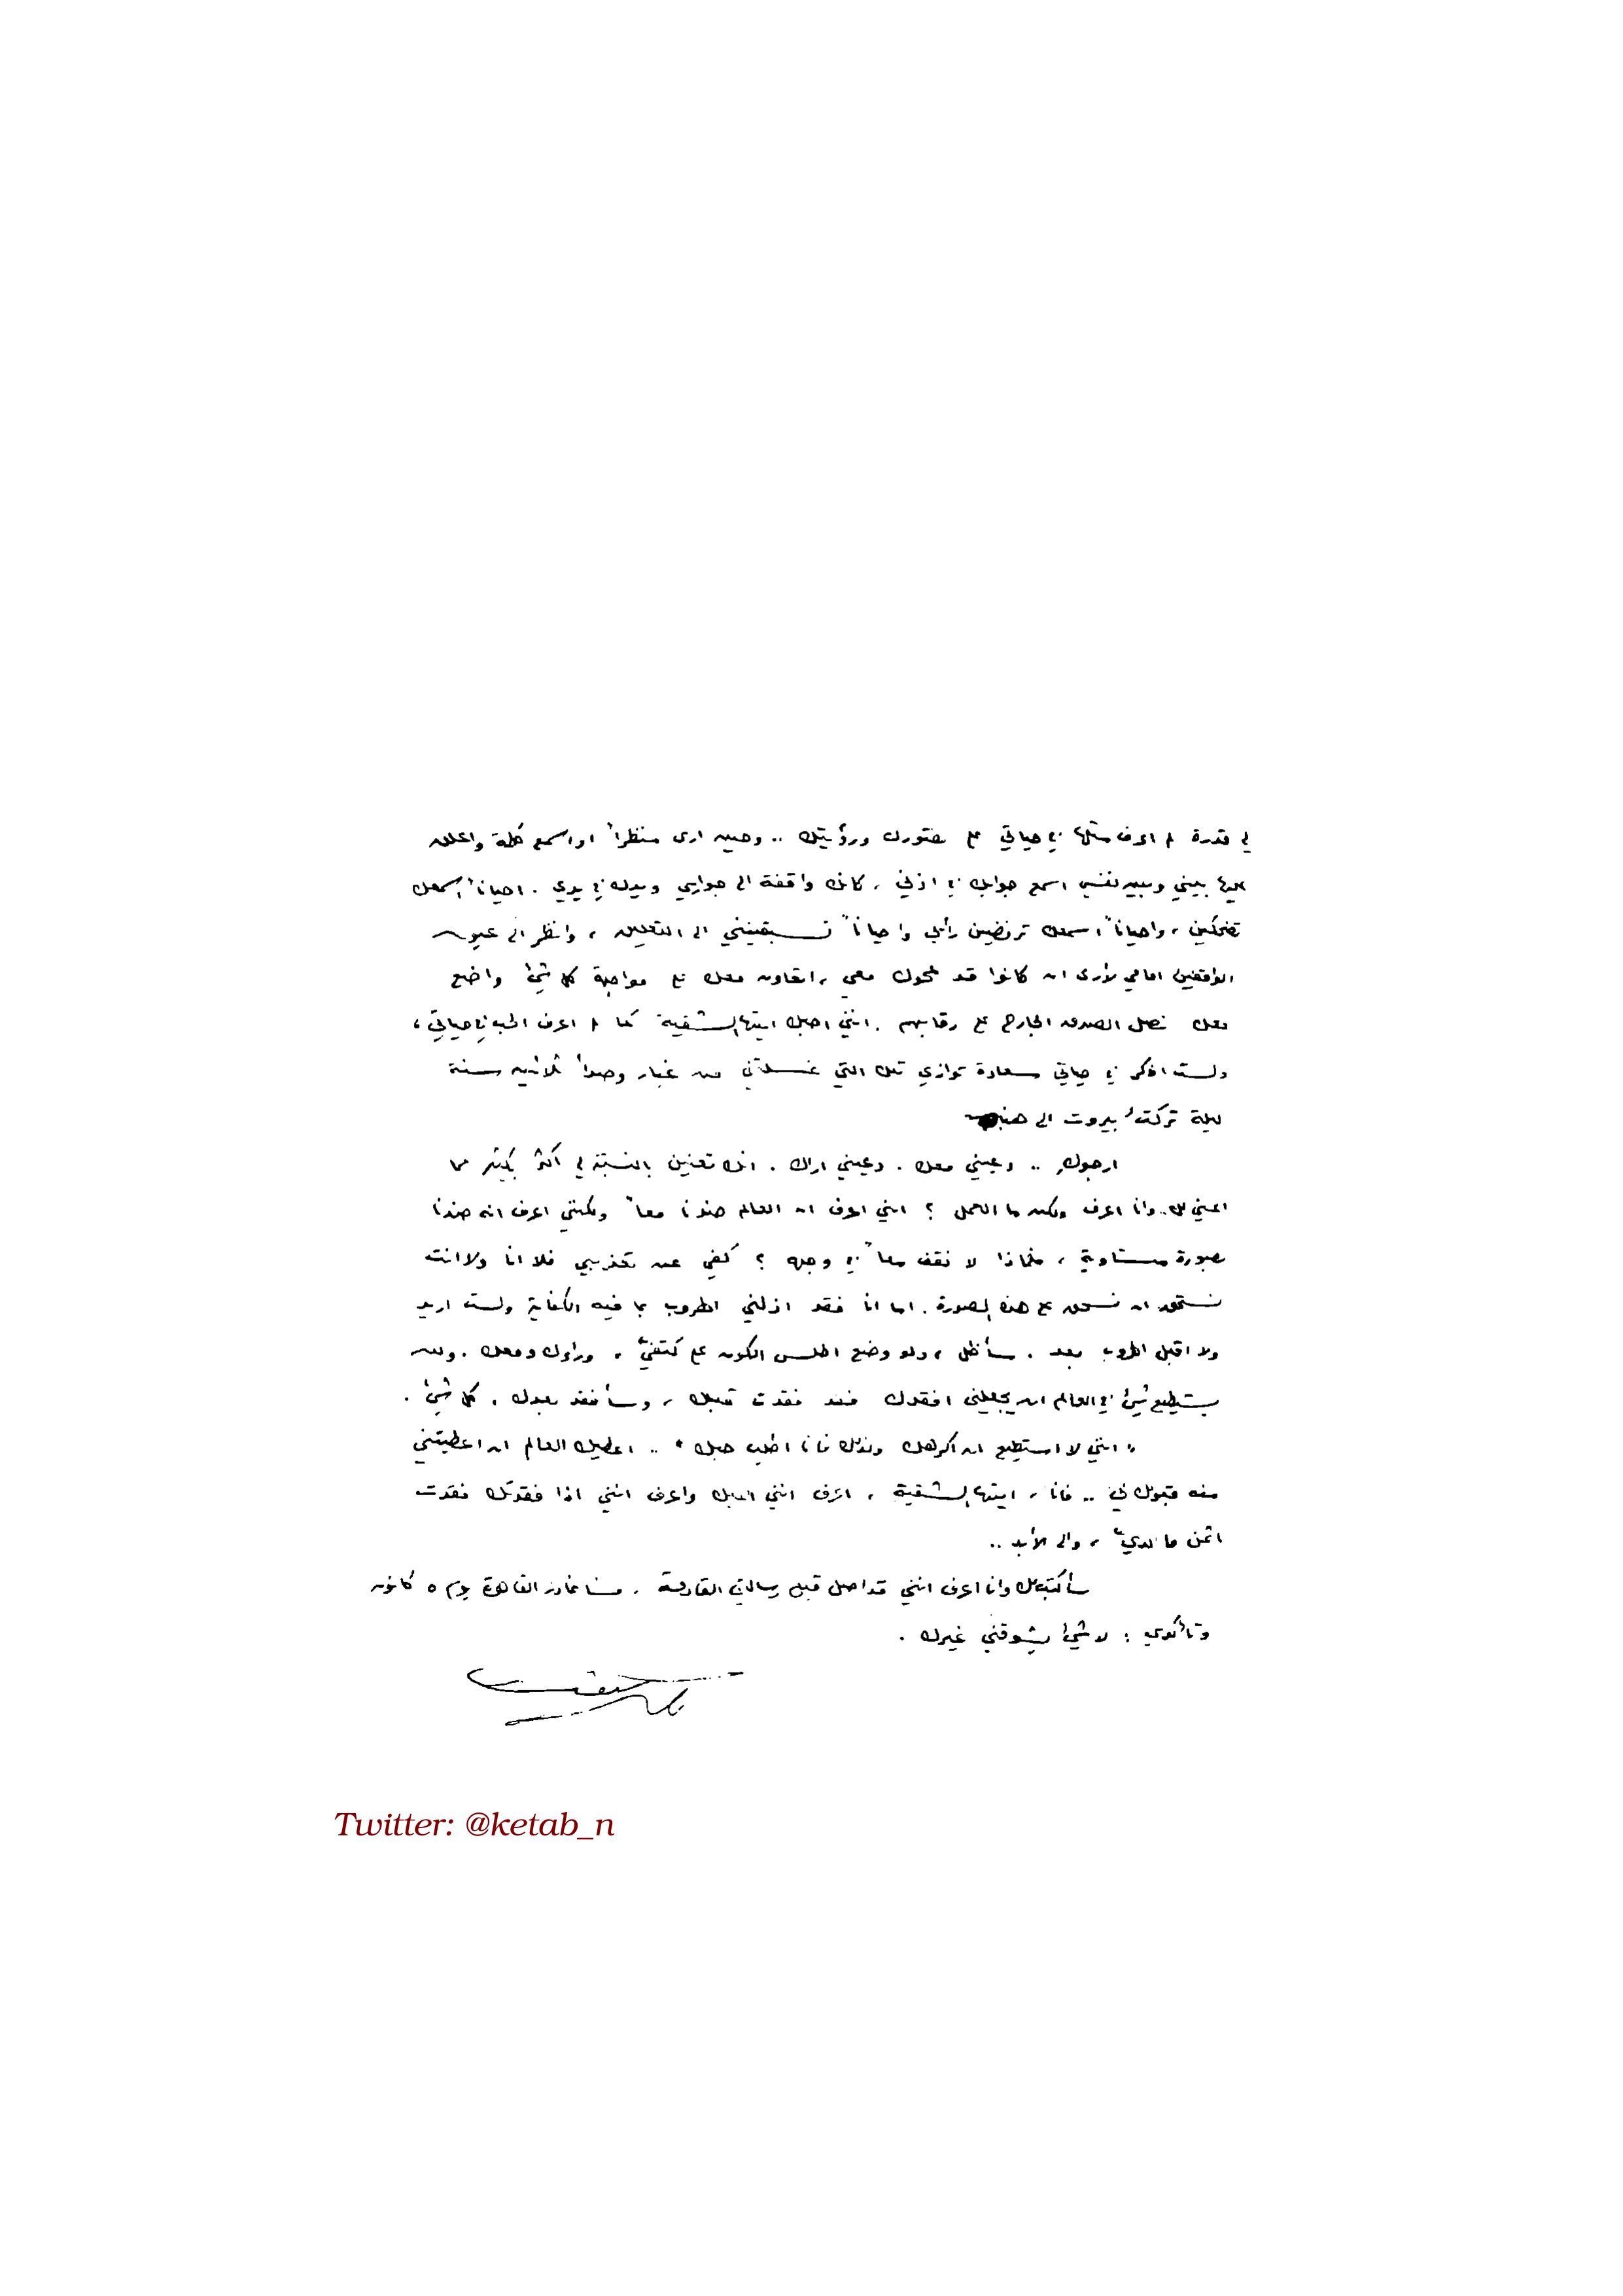 لي قدرة لم اعرف مثلها في حياتي على تصورك ورؤيتك .. وحين ارى منظراً او اسمع كلمة واعلق
عليها بيني وبين نفسي اسمع جوابك في اذني ، كأنك واقفة الى جواري ويدك في يدي . احياناً اسمعك
تضحكين ، واحياناً اسمعك ترفضين رأيي واحياناً تسبقينني الى التعليق ، وانظر الى عيون
الواقفين امامي لأرى ان كانوا قد لمحوك معي ، اتعاون معك على مواجهة كل شيء واضع
معك نصل الصدق الجارح على رقابهم . انني احبك ايتها الشقية كما لم اعرف الحب في حياتي ،
ولست اذكر في حياتي سعادة توازي تلك التي غسلتني من غبار وصدأ ثلاثين سنة
ليلة تركتُ بيروت الى هنا
ارجوكِ .. دعيني معك . دعيني اراك . انك تعنين بالنسبة لي اكثر بكثير مما
اعني لك .. وانا اعرف ولكن ما العمل ؟ انني اعرف ان العالم ضدنا معاً ولكنني اعرف انه ضدنا
بصورة متساوية ، فلماذا لا نقف معاً في وجهه ؟ كفي عن تعذيبي فلا انا ولا انت
نستحق ان نسحق على هذه الصورة . اما انا فقد اذلني الهروب بما فيه الكفاية ولست اريد
ولا اقبل الهروب بعد . سأظل ، ولو وضع اطلس الكون على كتفيّ ، وراءك ومعك . ولن
يستطيع شيء في العالم ان يجعلني افقدك فقد فقدت قبلك ، وسأفقد بعدك ، كل شيء .
" انني لا استطيع ان اكرهك ولذلك فانا اطلب حبك " .. اعطيك العالم ان اعطيتني
منه قبولك لي .. فانا ، ايتها الشقية ، اعرف انني احبك واعرف انني اذا فقدتك فقدت
اثمن ما لديّ ، والى الأبد ..
سأكتب لك وانا اعرف انني قد اصل قبل رسالتي القادمة ، فسأغادر القاهرة يوم ٥ كانون
وتأكدي : لا شيء يشوقني غيرك .
Twitter: @ketab_n